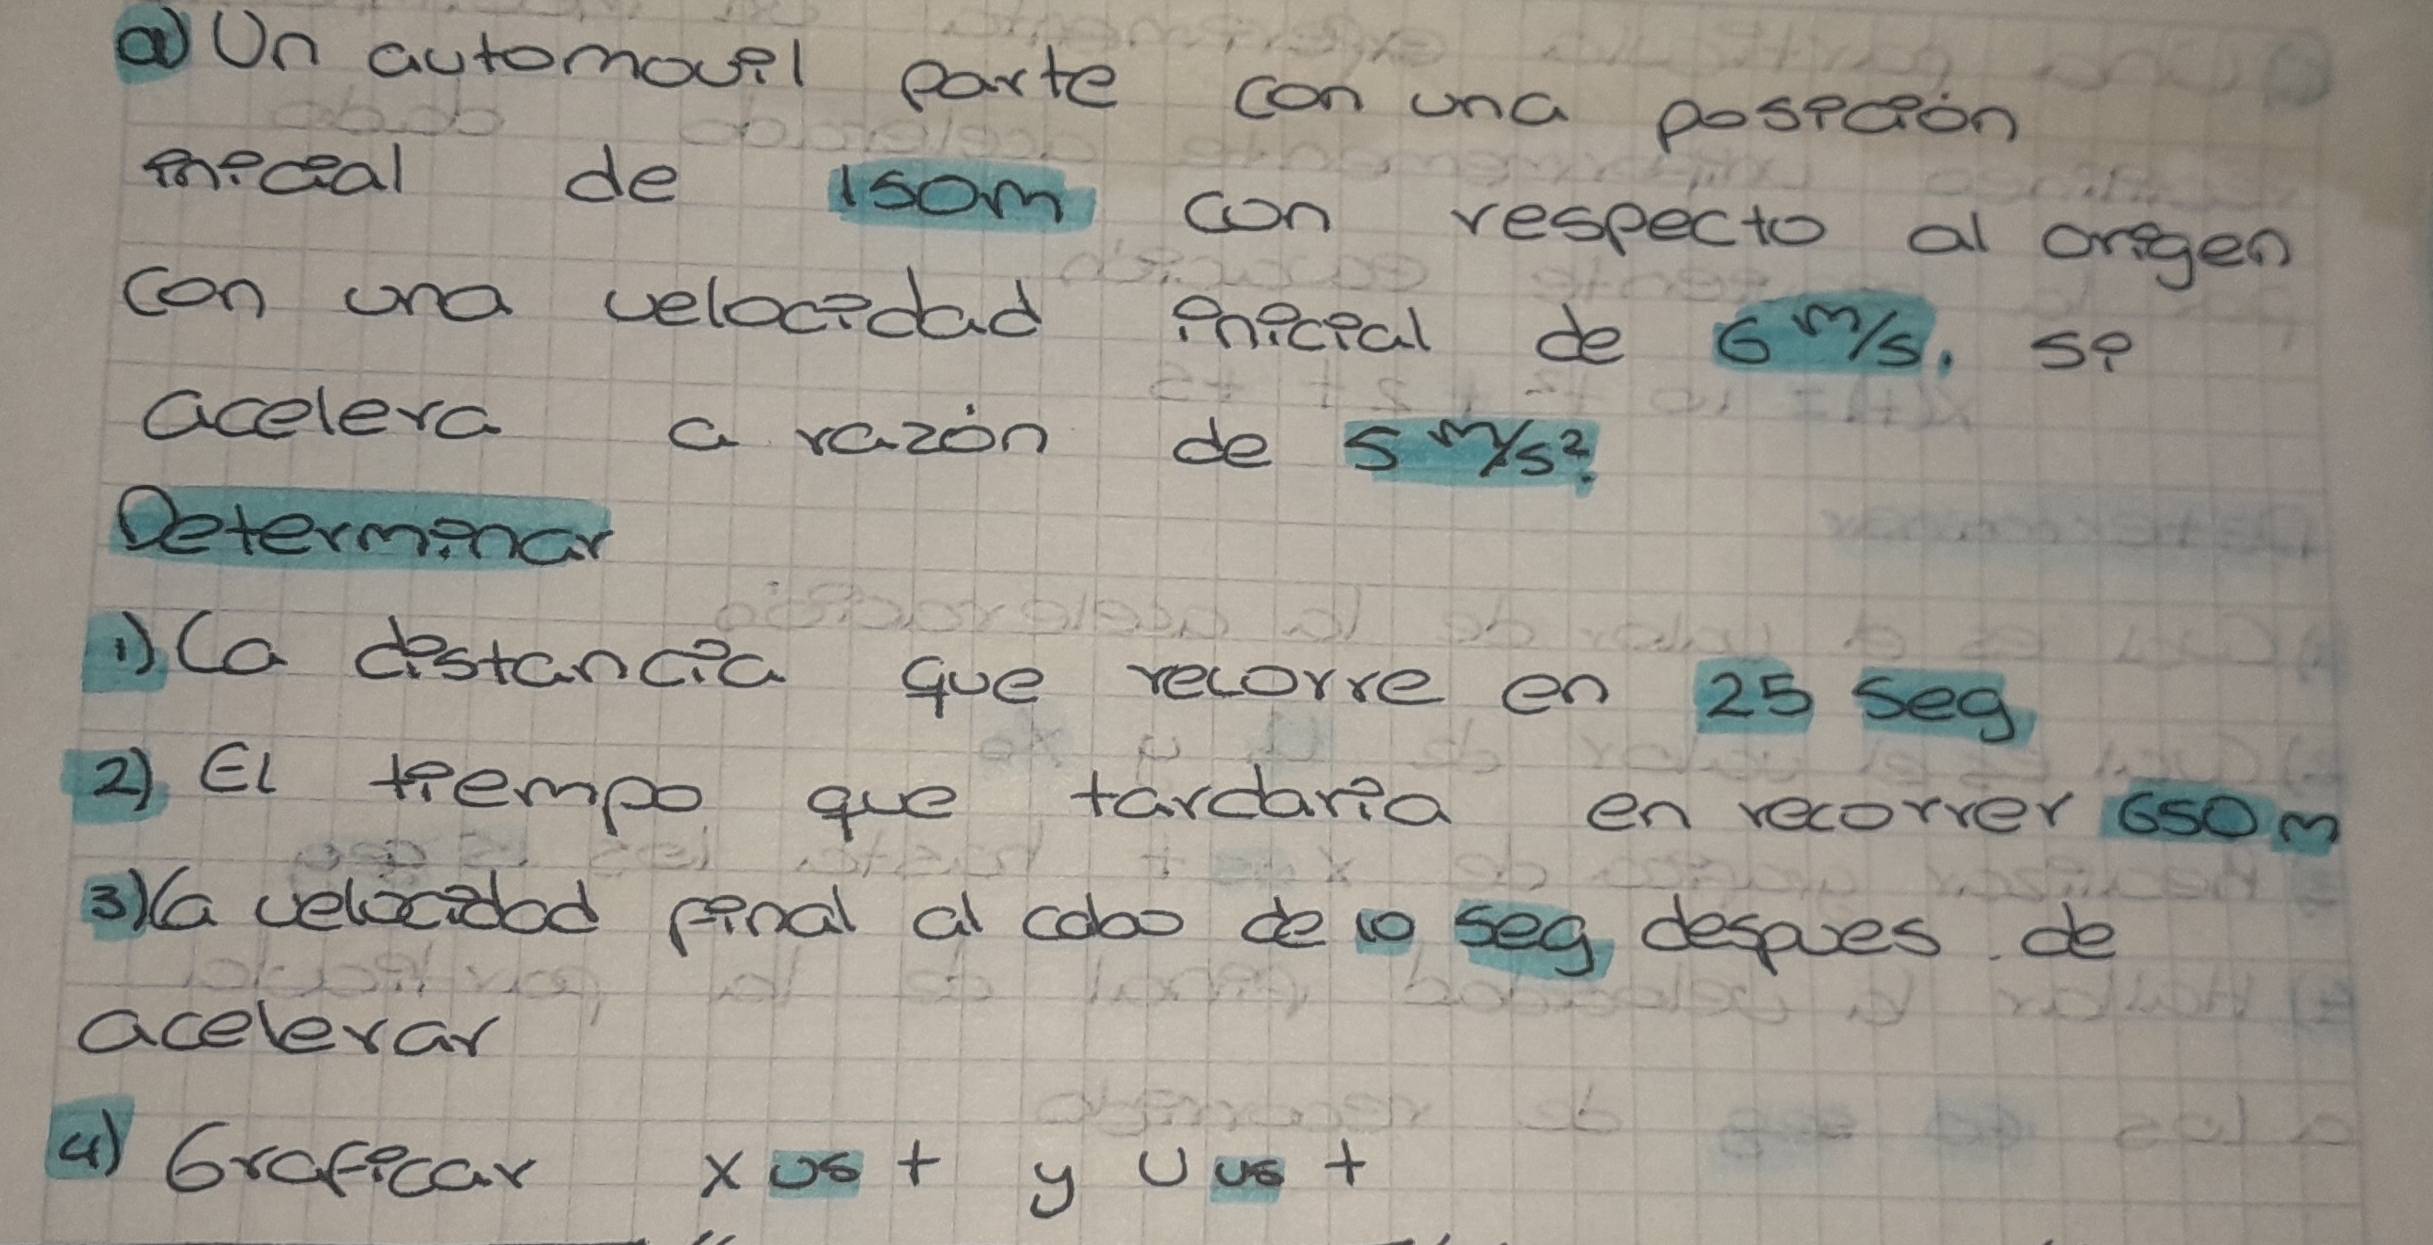 a) Un automovil parte con una posición
inicial de 150m con respecto al origen
con una velocidad inicial de 6 m/s. si
acelera a razón de 5 m/s².
Determinar
1) La distancia que recorre en 25 seg
2) El tiempo que tardaria en recorrer 650 m
3) La velocidad final al cabo de 10 seg despues de
acelerar
4) Graficar x vs t y v vs t